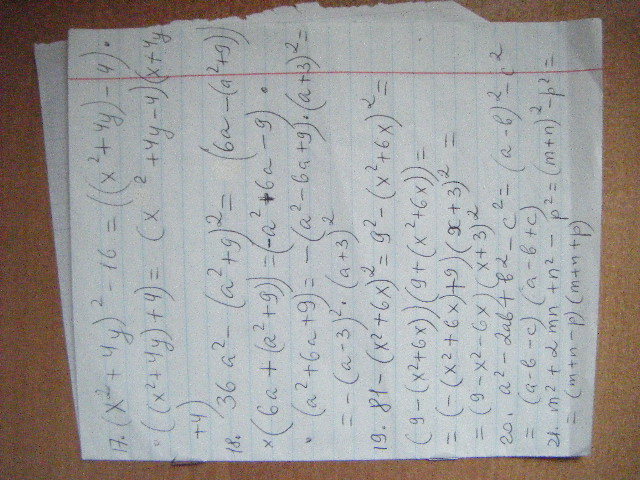 17. (x² + 4y)² - 16 = ((x² + 4y) - 4) ·
· ((x² + 4y) + 4) = (x² + 4y - 4)(x + 4y
+ 4)
18. 36a² - (a² + 9)² = (6a - (a² + 9))
× (6a + (a² + 9)) = (-a² + 6a - 9) ·
· (a² + 6a + 9) = -(a² - 6a + 9) · (a + 3)² =
= -(a - 3)² · (a + 3)²
19. 81 - (x² + 6x)² = 9² - (x² + 6x)² =
(9 - (x² + 6x))(9 + (x² + 6x)) =
= (-(x² + 6x) + 9)(x + 3)² =
= (9 - x² - 6x)(x + 3)²
20. a² - 2ab + b² - c² = (a - b)² - c²
= (a - b - c)(a - b + c)
21. m² + 2mn + n² - p² = (m + n)² - p² =
= (m + n - p)(m + n + p)